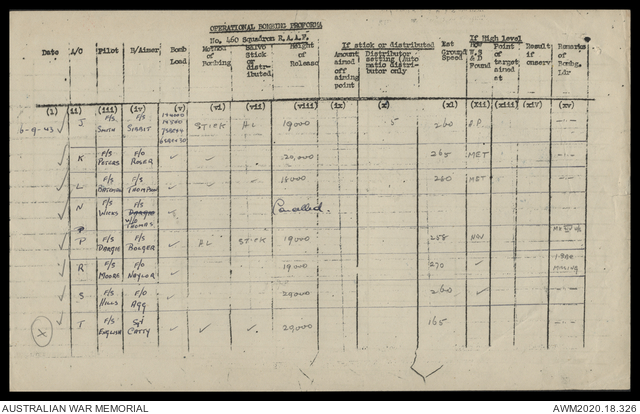 OPERATIONAL BOMBING PROFORMA
No. 460 Squadron R.A.A.F.
Date A/C Pilot B/Aimer Bomb Load Method of Bombing Salvo Stick or distributed. Height of Release If stick or distributed Amount aimed off aiming point Distributor setting (Auto matic distributor only Est Ground Speed If High level How W.S & D Found Point of target aimed at Result if observ Remarks of Bombg. Ldr
(1) (ii) (iii) (iv) (v) (vi) (vii) (viii) (ix) (x) (xi) (xii) (xiii) (xiv) (xv)
6-9-43 J F/S SMITH F/S STICK AL 19000 5 260
K F/S PETERS F/O 20,000 265 MET
L F/S F/S THOMPSON 260 MET
N F/S WICKS F/S THOMAS Cancelled.
P F/S F/S BOLGER AL STICK 19000 258
R F/S MOORE F/O NAYLOR 19000 270
S F/S HILLS F/O AGG 20000 260
X T F/S ENGLISH Sgt CATTY 20000 165
AUSTRALIAN WAR MEMORIAL AWM2020.18.326